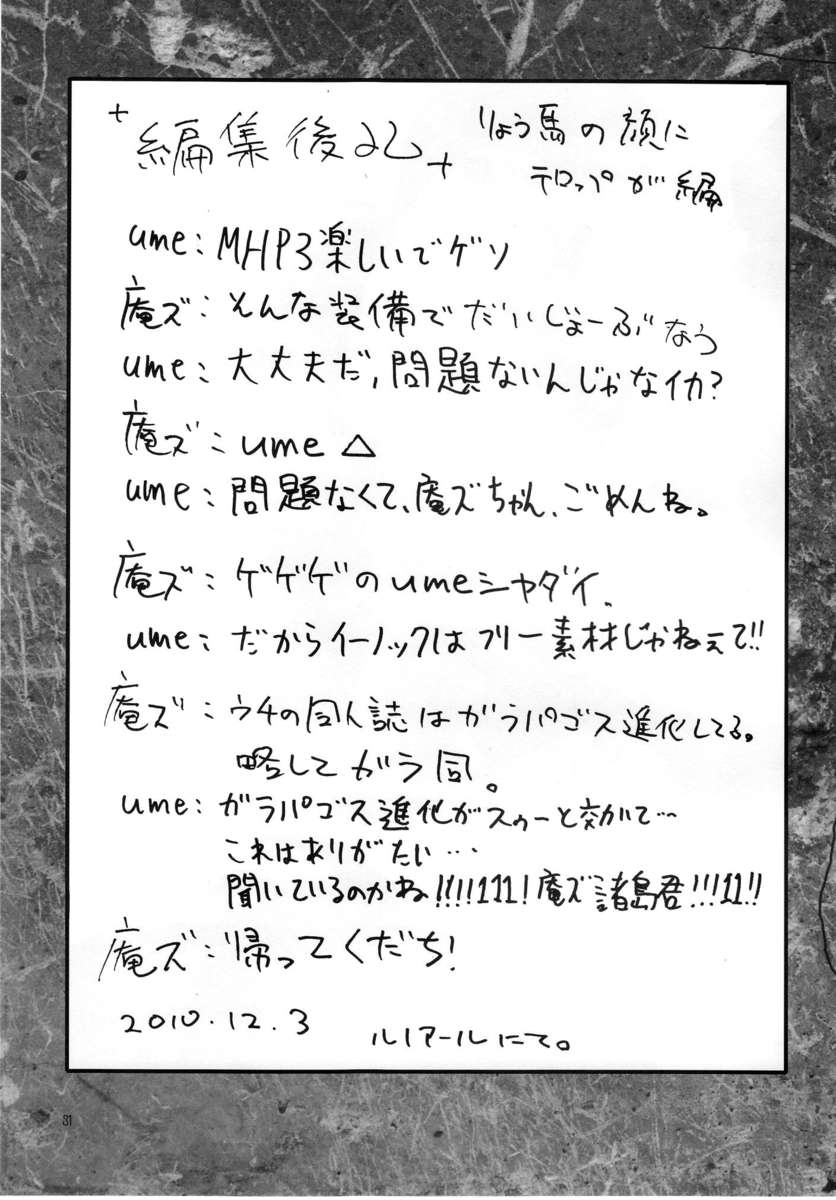 +編集後記+
りょう馬の顔に
テロップが編
ume:MHP3楽しいでゲソ
庵ズ:そんな装備でだいじょーぶなう
ume:大丈夫だ,問題ないんじゃなイカ?
庵ズ:ume△
ume:問題なくて、庵ズちゃん、ごめんね。
庵ズ:ゲゲゲのumeシャダイ、
ume:だからイーノックはフリー素材じゃねえて!!
庵ズ:ウチの同人誌はガラパゴス進化してる。
略してガラ同。
ume:ガラパゴス進化がスゥーと効いて…
これはありがたい…
聞いているのかね!!!!111!庵ズ諸島君!!!11!!
庵ズ:帰ってくだち!
2010.12.3
ルノアールにて。
31